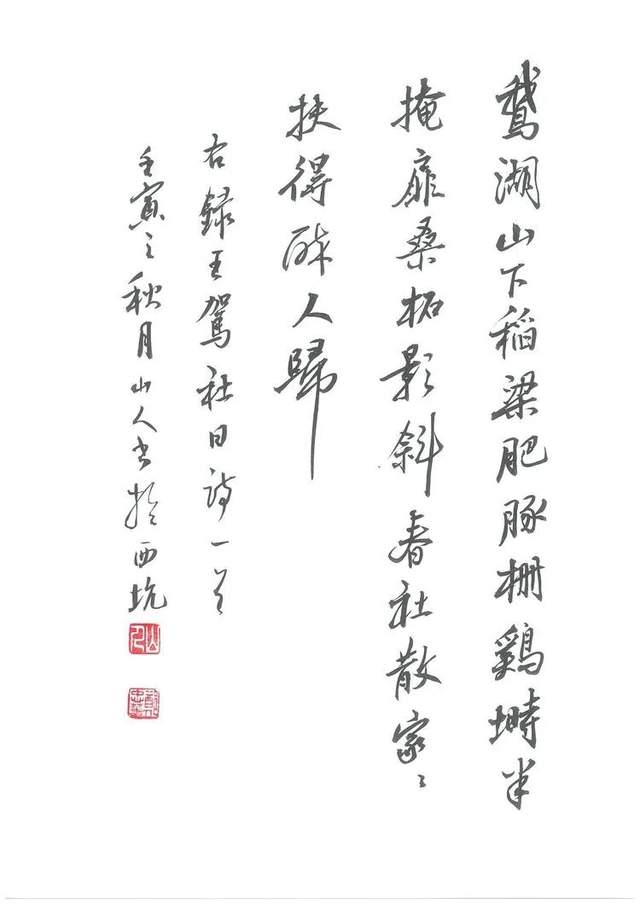 鵞湖山下稻梁肥豚栅鷄塒半
掩扉桑柘影斜春社散家〻
扶得醉人歸
右録王駕社日詩一首
壬寅之秋月山人書於西坑
山人